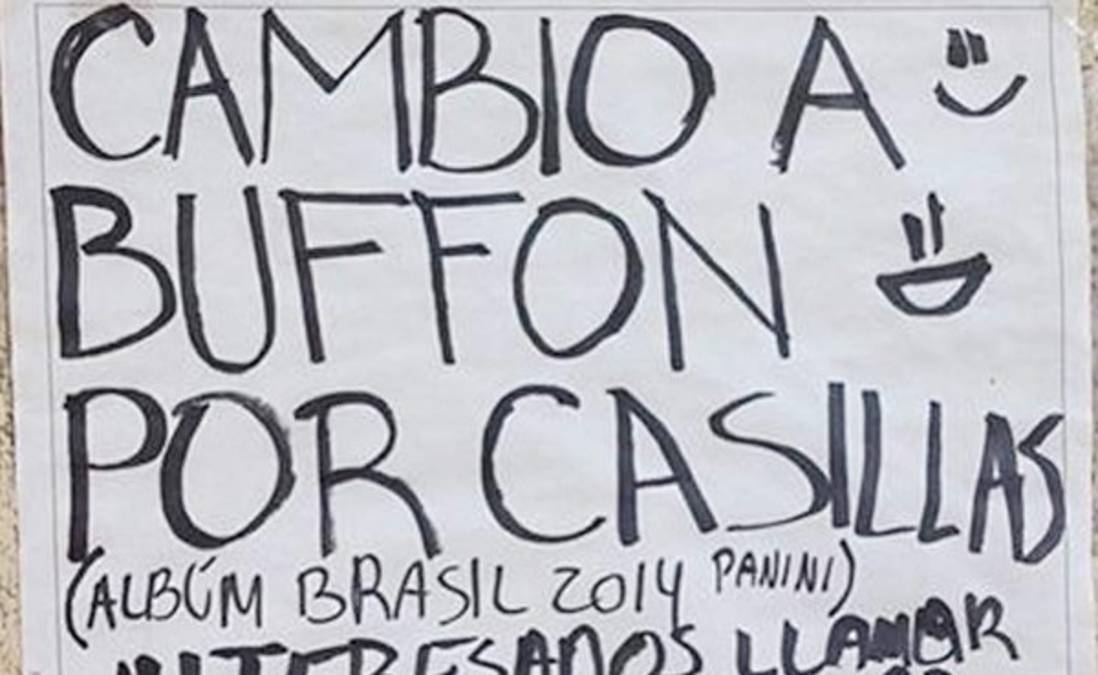 CAMBIO A
BUFFON
POR CASILLAS
(ALBÚM BRASIL 2014 PANINI)
INTERESADOS LLAMAR